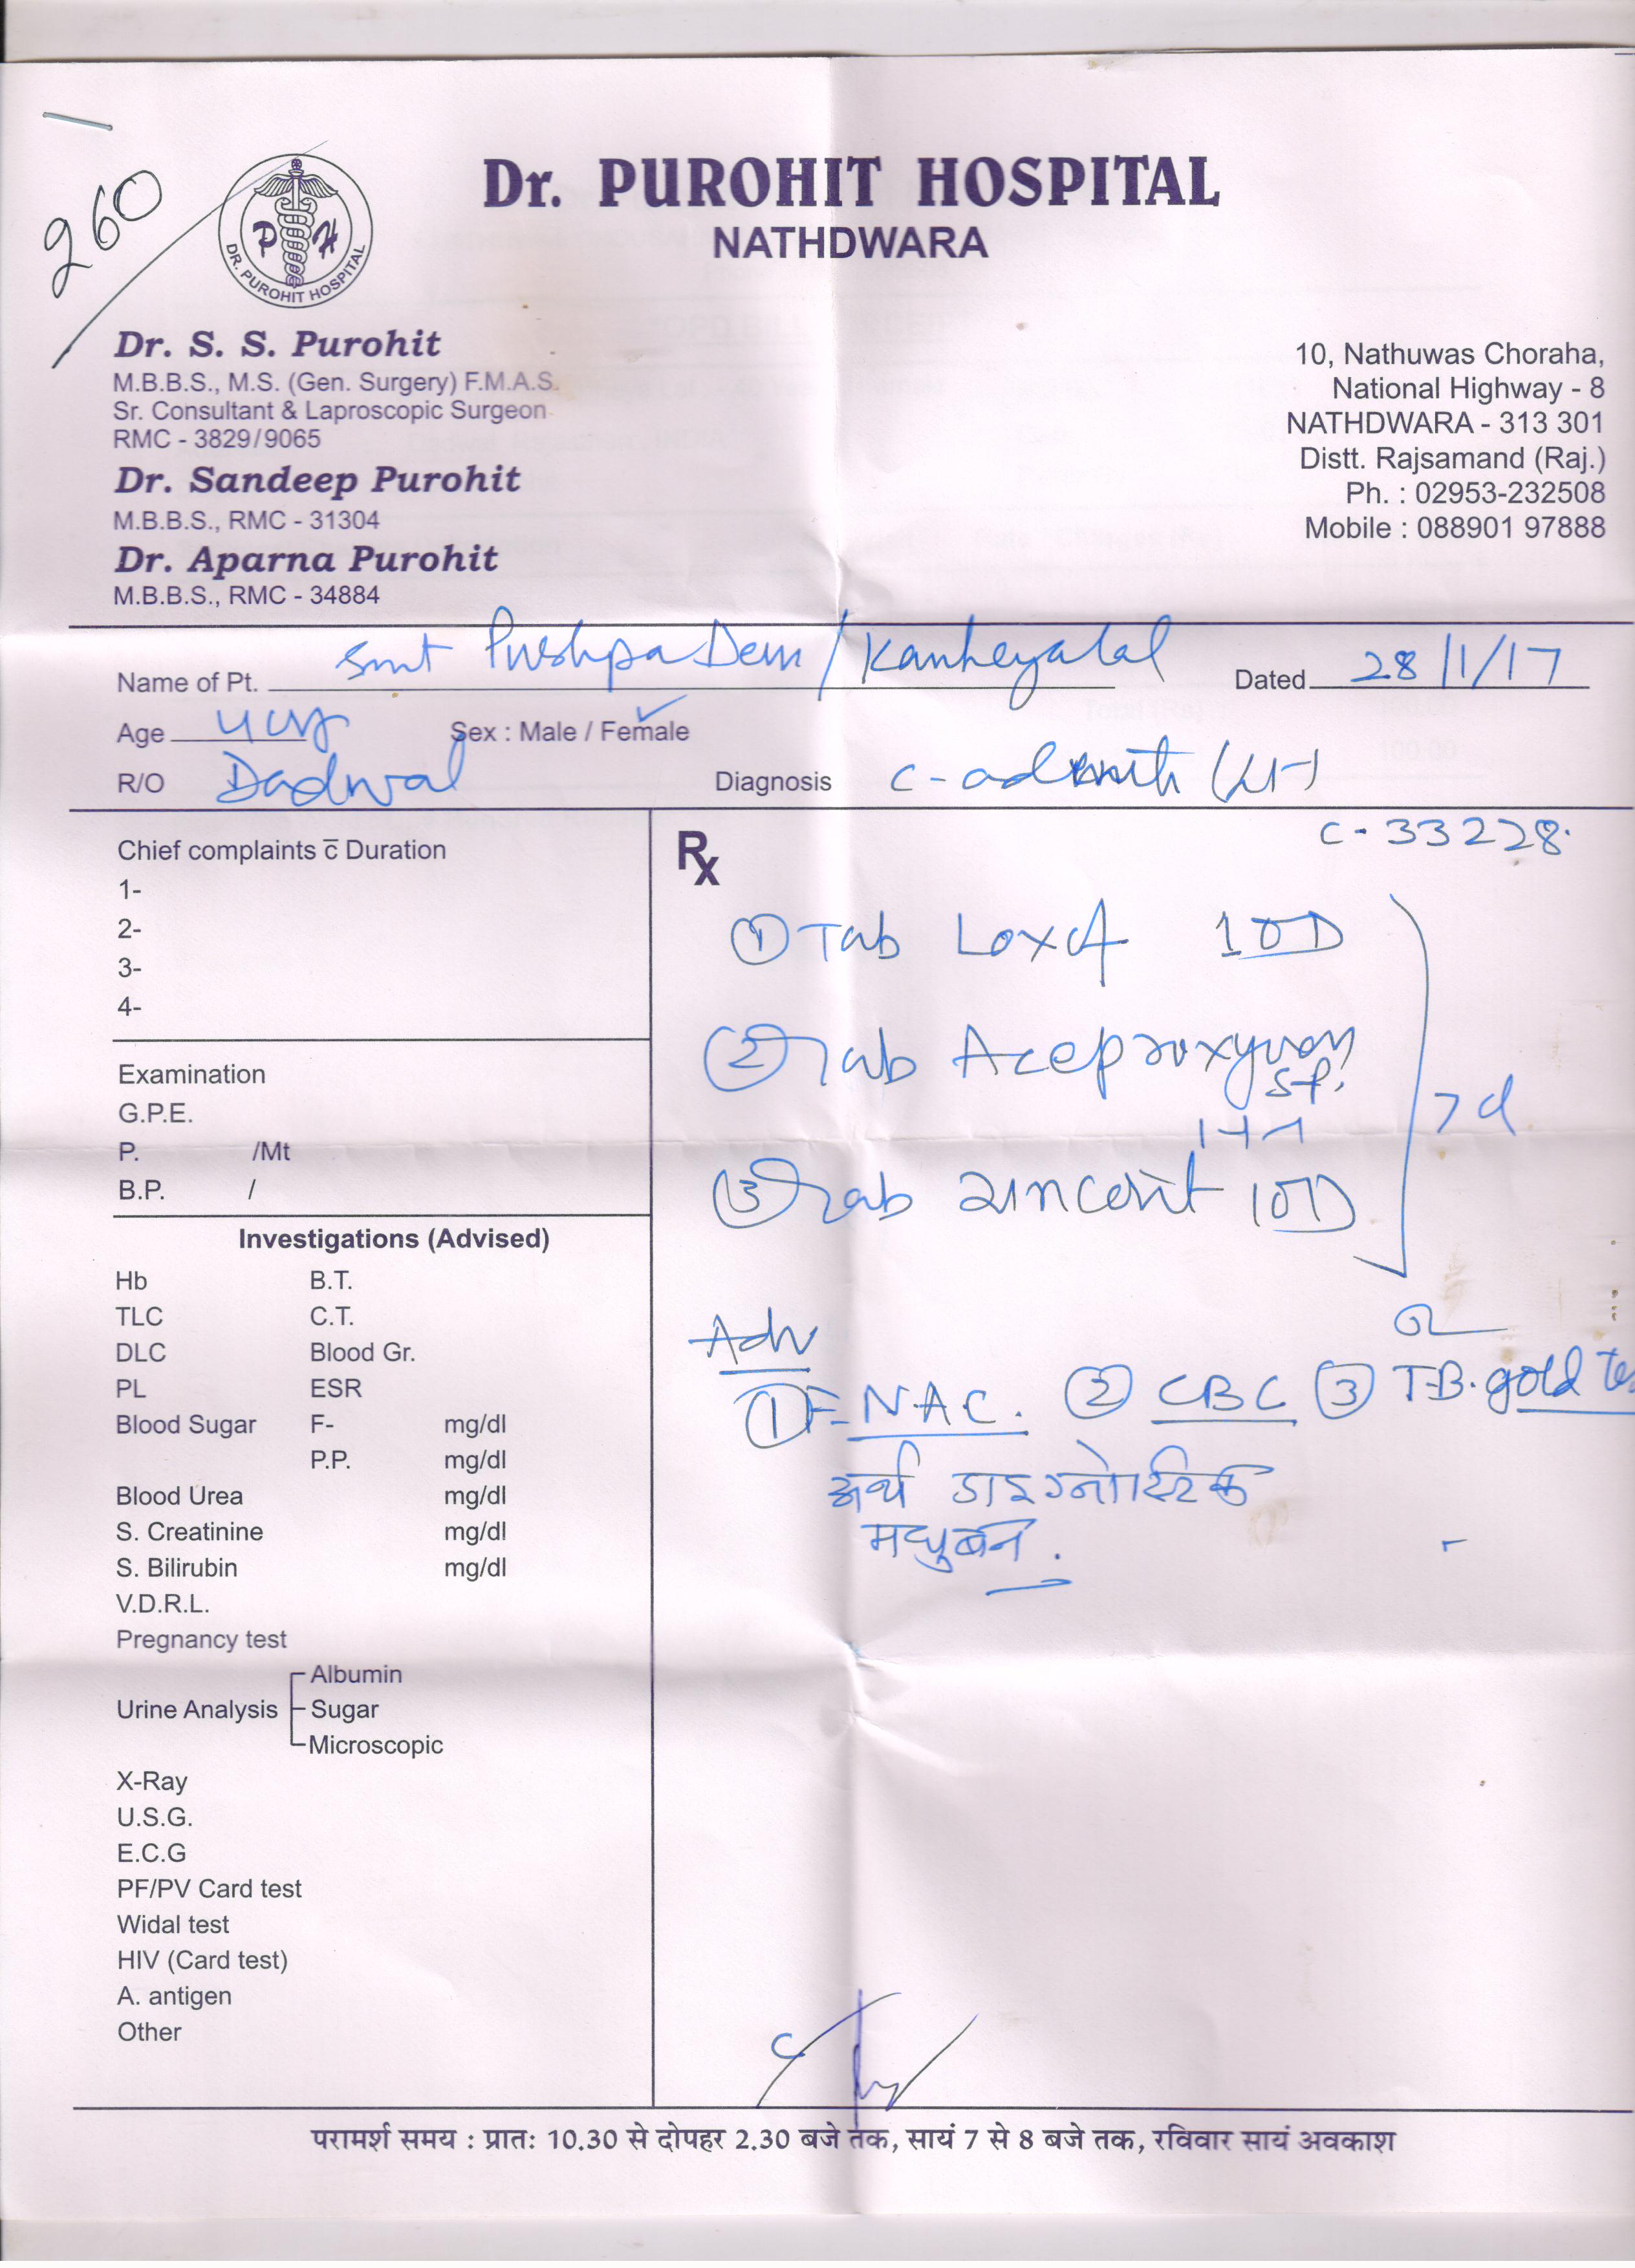 260
P H
DR. PUROHIT HOSPITAL
Dr. PUROHIT HOSPITAL
NATHDWARA
Dr. S. S. Purohit
M.B.B.S., M.S. (Gen. Surgery) F.M.A.S.
Sr. Consultant & Laproscopic Surgeon
RMC - 3829/9065
Dr. Sandeep Purohit
M.B.B.S., RMC - 31304
Dr. Aparna Purohit
M.B.B.S., RMC - 34884
10, Nathuwas Choraha,
National Highway - 8
NATHDWARA - 313 301
Distt. Rajsamand (Raj.)
Ph. : 02953-232508
Mobile : 088901 97888
Name of Pt. Smt Pushpa Devi / Kanheyalal Dated 28/1/17
Age Sex : Male / Female
R/O Dadwal Diagnosis C-adenitis
Chief complaints c̅ Duration
1-
2-
3-
4-
Examination
G.P.E.
P. /Mt
B.P. /
Investigations (Advised)
Hb B.T.
TLC C.T.
DLC Blood Gr.
PL ESR
Blood Sugar F- mg/dl
P.P. mg/dl
Blood Urea mg/dl
S. Creatinine mg/dl
S. Bilirubin mg/dl
V.D.R.L.
Pregnancy test
Urine Analysis Albumin
Sugar
Microscopic
X-Ray
U.S.G.
E.C.G
PF/PV Card test
Widal test
HIV (Card test)
A. antigen
Other
Rx
C-33228.
① Tab 1OD
② Tab Aceproxyvon
SP.
7d
③ Tab 1OD
Adv
① F.N.A.C. ② CBC ③ T.B. gold
अर्थ डाइग्नोस्टिक
मधुबन.
परामर्श समय : प्रातः 10.30 से दोपहर 2.30 बजे तक, सायं 7 से 8 बजे तक, रविवार सायं अवकाश